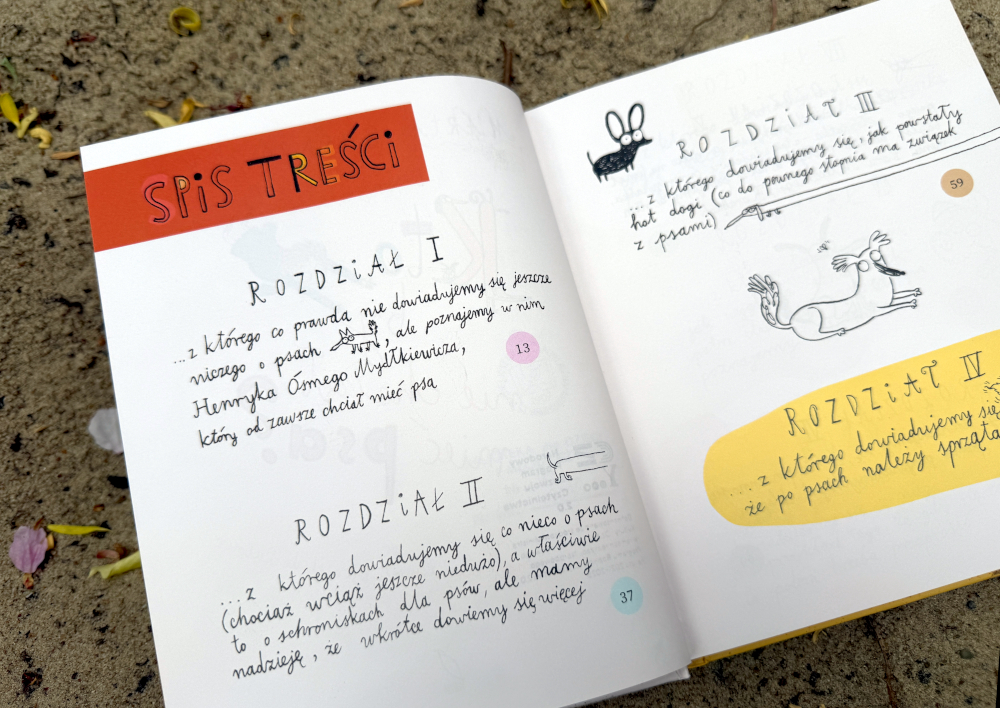 SPiS TREŚCi
ROZDZiAŁ I
...z którego co prawda nie dowiadujemy się jeszcze
niczego o psach , ale poznajemy w nim
Henryka Ósmego Mydłkiewicza,
który od zawsze chciał mieć psa
13
ROZDZiAŁ II
...z którego dowiadujemy się co nieco o psach
(chociaż wciąż jeszcze niedużo), a właściwie
to o schroniskach dla psów, ale mamy
nadzieję, że wkrótce dowiemy się więcej
37
ROZDZiAŁ III
...z którego dowiadujemy się, jak powstały
hot dogi (co do pewnego stopnia ma związek
z psami)
59
ROZDZiAŁ IV
...z którego dowiadujemy się
że po psach należy sprząta